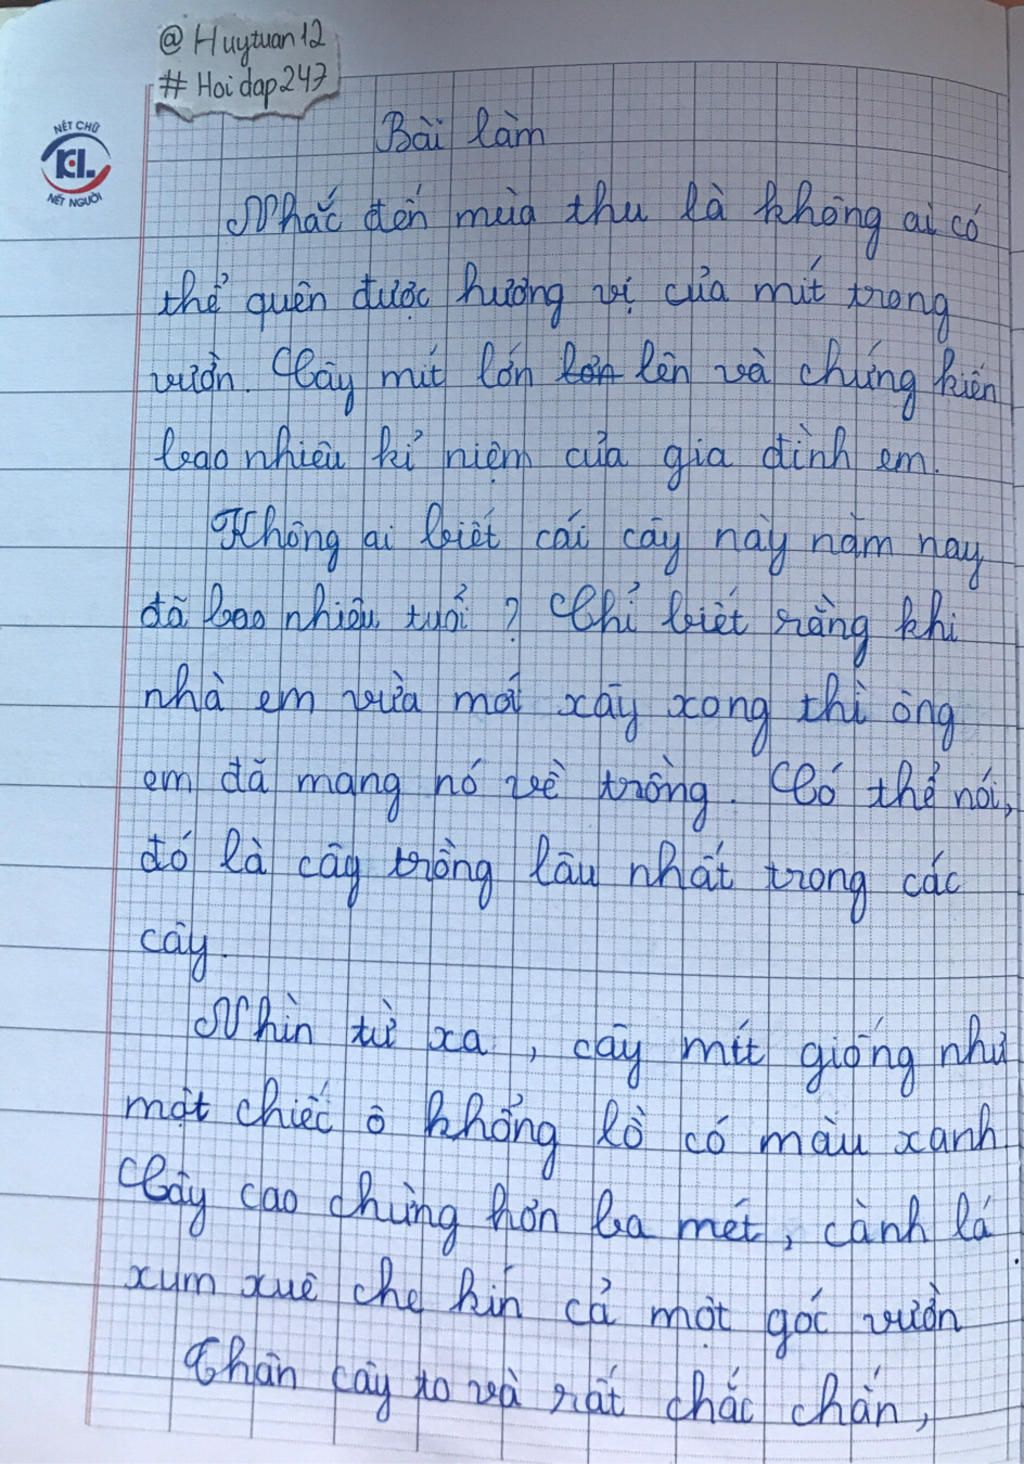 @ Huytuan12
# Hoi dap 247
NÉT CHỮ
KL
NẾT NGƯỜI
Bài làm
Nhắc đến mùa thu là không ai có
thể quên được hương vị của mít trong
vườn. Cây mít lớn lớn lên và chứng kiến
bao nhiêu kỉ niệm của gia đình em.
Không ai biết cái cây này năm nay
đã bao nhiêu tuổi ? Chỉ biết rằng khi
nhà em vừa mới xây xong thì ông
em đã mang nó về trồng. Có thể nói,
đó là cây trồng lâu nhất trong các
cây.
Nhìn từ xa , cây mít giống như
một chiếc ô khổng lồ có màu xanh
Cây cao chừng hơn ba mét, cành lá
xum xuê che kín cả một góc vườn
Thân cây to và rất chắc chắn,